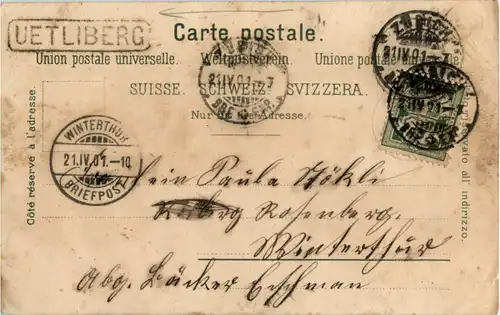 UETLIBERG
Carte postale.
Union postale universelle. Weltpostverein. Unione postale universale
SUISSE. SCHWEIZ. SVIZZERA.
Nur für die Adresse.
Côté réservé à l'adresse.
ZÜRICH
21.IV.01.-7
BRIEFEXP.
WINTERTHUR
21.IV.01.-10
BRIEFPOST
all' indirizzo.
Paula Stökli
Rosenberg.
Winterthur
Abg. Bäcker